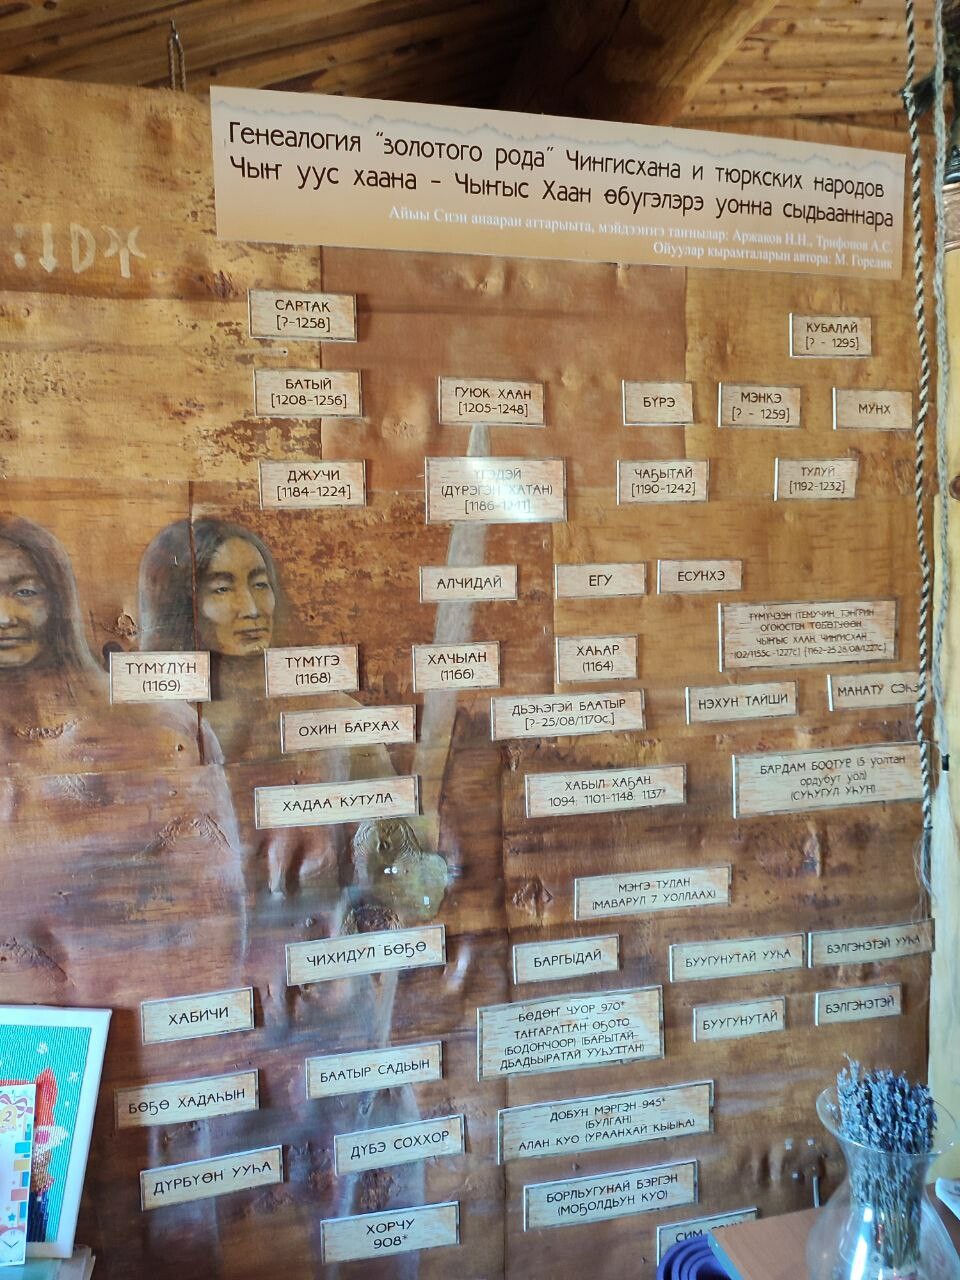 Генеалогия "золотого рода" Чингисхана и тюркских народов
Чыҥ уус хаана - Чыҥыс Хаан өбүгэлэрэ уонна сыдьааннара
Айыы Сиэн анааран аттарыыта, мэйдээҥҥэ таҥнылар: Аржаков Н.Н., Трифонов А.С.
Ойуулар кырамталарын автора: М. Горелик
САРТАК
[?-1258]
КУБАЛАЙ
[? - 1295]
БАТЫЙ
[1208-1256]
ГУЮК ХААН
[1205-1248]
БҮРЭ
МЭНКЭ
[? - 1259]
МУНХ
ДЖУЧИ
[1184-1224]
ҮГЭДЭЙ
(ДҮРЭГЭН ХАТАН)
[1186-1241]
ЧАҔЫТАЙ
[1190-1242]
ТУЛУЙ
[1192-1232]
АЛЧИДАЙ
ЕГУ
ЕСУНХЭ
ТҮМҮЧЭЭН (ТЕМУЧИН, ТЭНГРИН
ЧЫҤЫС ХААН, ЧИНГИСХАН
ТҮМҮЛҮН
(1169)
ТҮМҮГЭ
(1168)
ХАЧЫАН
(1166)
ХАҺАР
(1164)
ОХИН БАРХАХ
ДЬЭҺЭГЭЙ БААТЫР
[?-25/08/1170с.]
НЭХУН ТАЙШИ
МАНАТУ СЭҺЭ
ХАДАА КУТУЛА
ХАБЫЛ ХАҔАН
1094, 1101-1148, 1137*
БАРДАМ БООТУР (5 уолтан
ордубут уол)
(СУҺУГУЛ УҺУН)
МЭҤЭ ТУЛАН
(МАВАРУЛ 7 УОЛЛААХ)
ЧИХИДУЛ БӨҔӨ
БАРГЫДАЙ
БУУГУНУТАЙ УУҺА
БЭЛГЭНЭТЭЙ УУҺА
ХАБИЧИ
БӨДӨҤ ЧУОР 970*
ТАҤАРАТТАН ОҔОТО
(БОДОНЧООР) (БАРЫТАЙ-
ДЬАДЬЫРАТАЙ УУҺУТТАН)
БУУГУНУТАЙ
БЭЛГЭНЭТЭЙ
БӨҔӨ ХАДАҺЫН
БААТЫР САДЬЫН
ДОБУН МЭРГЭН 945*
(БУЛГАН)
АЛАН КУО (УРААНХАЙ КЫЫҺА)
ДҮРБҮӨН УУҺА
ДҮБЭ СОХХОР
БОРЛЬУГУНАЙ БЭРГЭН
(МОҔОЛДЬУН КУО)
ХОРЧУ
908*
СИМ